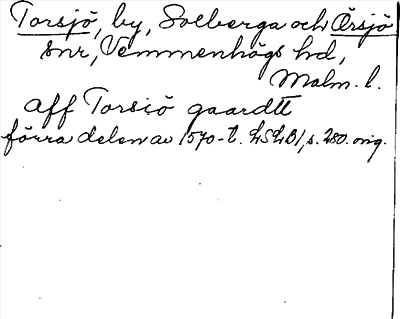 Torsjö, by, Solberga och Örsjö
snr, Vemmenhögs hd,
Malm. l.
aff Torsiö gaardtt
förra delen av 1570-t. LSLB1, s. 280. orig.